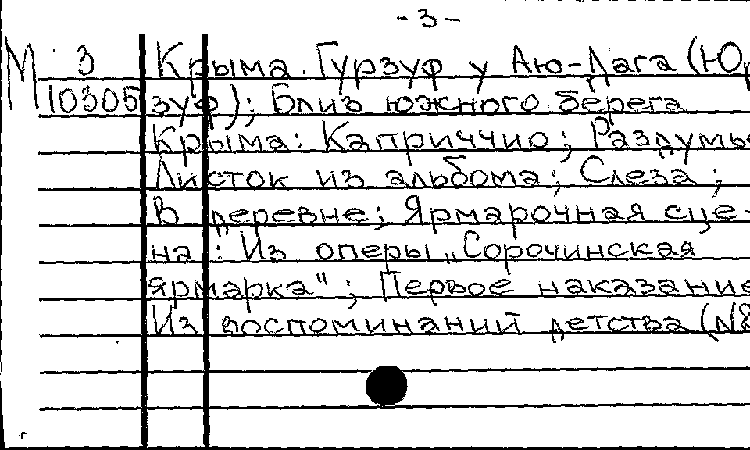 -3-
М 3 Крыма. Гурзуф у Аю-Дага (Юр
10305 зуф); Близ южного берега
Крыма: Каприччио; Раздумье
Листок из альбома; Слеза;
В деревне; Ярмарочная сце-
на: Из оперы „Сорочинская
ярмарка"; Первое наказание
Из воспоминаний детства (№8